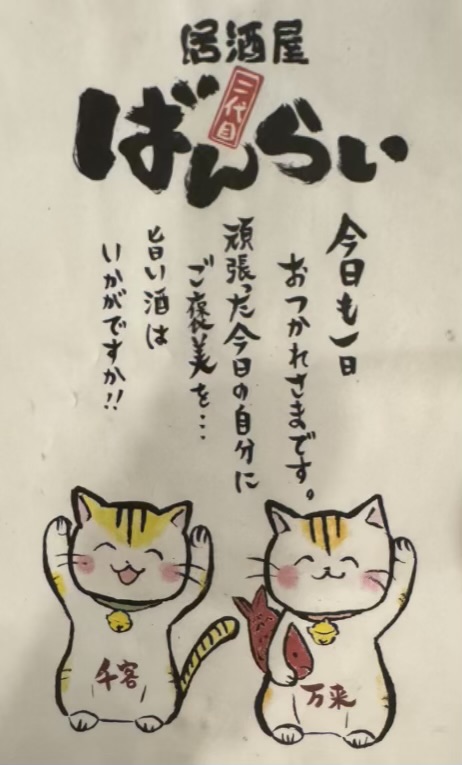 居酒屋
二代目
ばんらい
今日も一日
おつかれさまです。
頑張った今日の自分に
ご褒美を…
旨い酒は
いかがですか!!
千客
万来